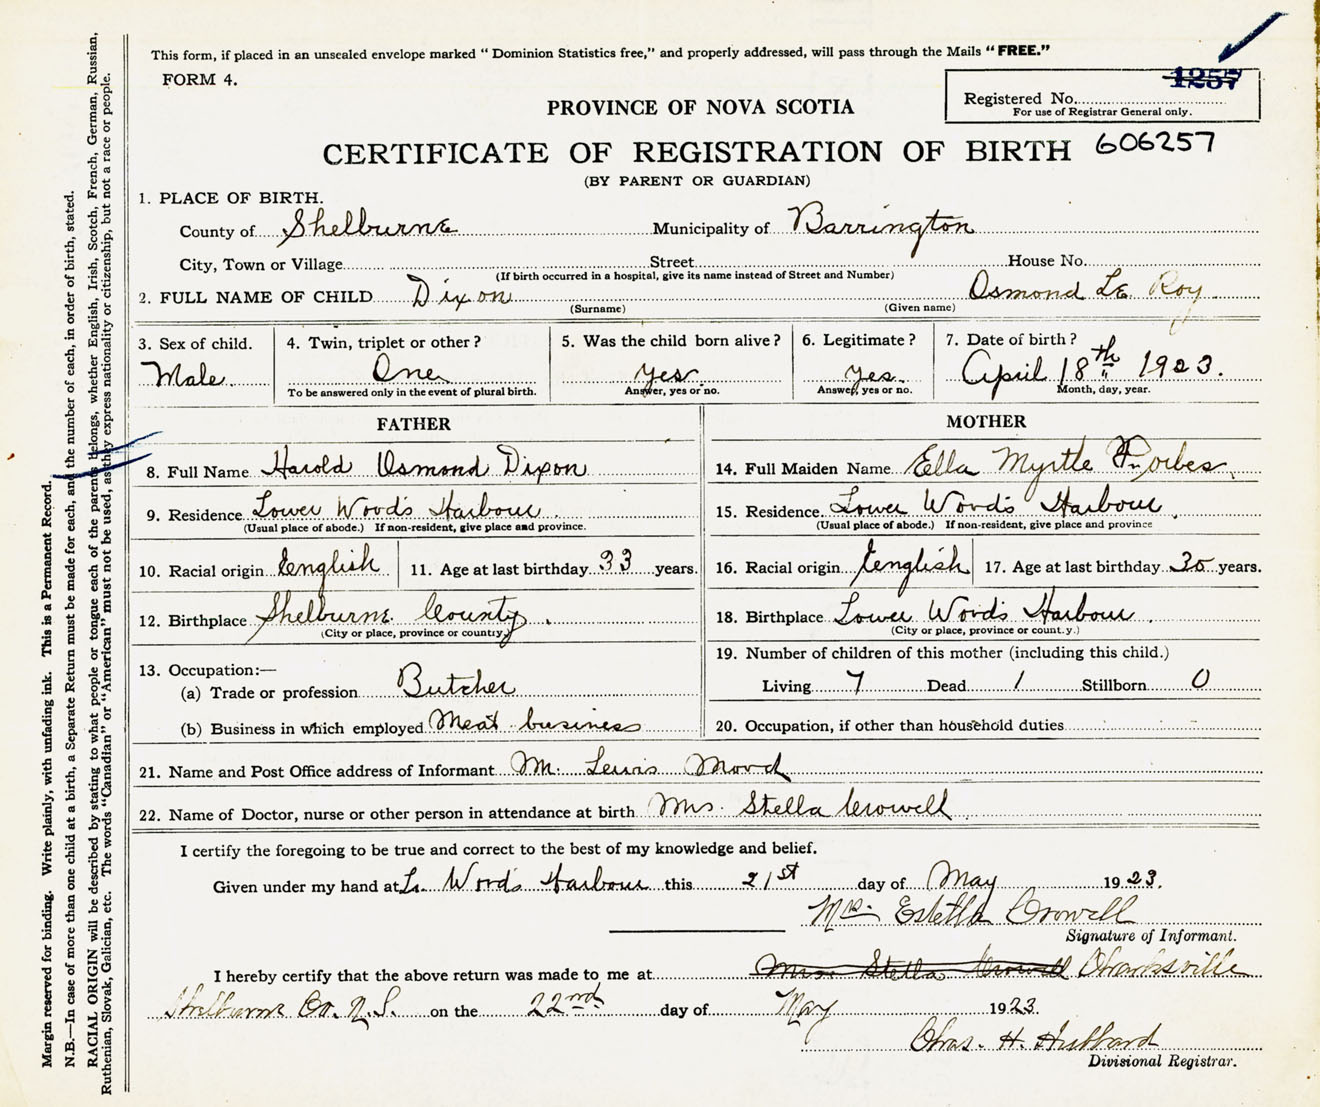 This form, if placed in an unsealed envelope marked "Dominion Statistics free," and properly addressed, will pass through the Mails "FREE."
FORM 4.
1257
Registered No.
For use of Registrar General only.
PROVINCE OF NOVA SCOTIA
CERTIFICATE OF REGISTRATION OF BIRTH 606257
(BY PARENT OR GUARDIAN)
1. PLACE OF BIRTH.
County of Shelburne Municipality of Barrington
City, Town or Village Street House No.
(If birth occurred in a hospital, give its name instead of Street and Number)
2. FULL NAME OF CHILD Dixon Osmond Le Roy
(Surname) (Given name)
3. Sex of child. 4. Twin, triplet or other? 5. Was the child born alive? 6. Legitimate? 7. Date of birth?
Male One yes yes April 18th 1923.
To be answered only in the event of plural birth. Answer, yes or no. Answer, yes or no. Month, day, year.
FATHER
8. Full Name Harold Osmond Dixon
9. Residence Lower Wood's Harbour
(Usual place of abode.) If non-resident, give place and province.
10. Racial origin English 11. Age at last birthday 33 years.
12. Birthplace Shelburne County.
(City or place, province or country)
13. Occupation:—
(a) Trade or profession Butcher
(b) Business in which employed Meat business
MOTHER
14. Full Maiden Name Ella Myrtle Forbes
15. Residence Lower Wood's Harbour.
(Usual place of abode.) If non-resident, give place and province
16. Racial origin English 17. Age at last birthday 35 years.
18. Birthplace Lower Wood's Harbour.
(City or place, province or count.y.)
19. Number of children of this mother (including this child.)
Living 7 Dead 1 Stillborn 0
20. Occupation, if other than household duties
21. Name and Post Office address of Informant M. Lewis Mood
22. Name of Doctor, nurse or other person in attendance at birth Mrs. Stella Crowell
I certify the foregoing to be true and correct to the best of my knowledge and belief.
Given under my hand at L. Wood's Harbour this 21st day of May 1923.
Mrs. Estella Crowell
Signature of Informant.
I hereby certify that the above return was made to me at Stella Crowell
Shelburne Co. N.S. on the 22nd day of May 1923.
Chas. H. Hubbard
Divisional Registrar.
Margin reserved for binding. Write plainly, with unfading ink. This is a Permanent Record.
N.B.—In case of more than one child at a birth, a Separate Return must be made for each, and the number of each, in order of birth, stated.
RACIAL ORIGIN will be described by stating to what people or tongue each of the parents belongs, whether English, Irish, Scotch, French, German, Russian,
Ruthenian, Slovak, Galician, etc. The words "Canadian" or "American" must not be used, as they express nationality or citizenship, but not a race or people.